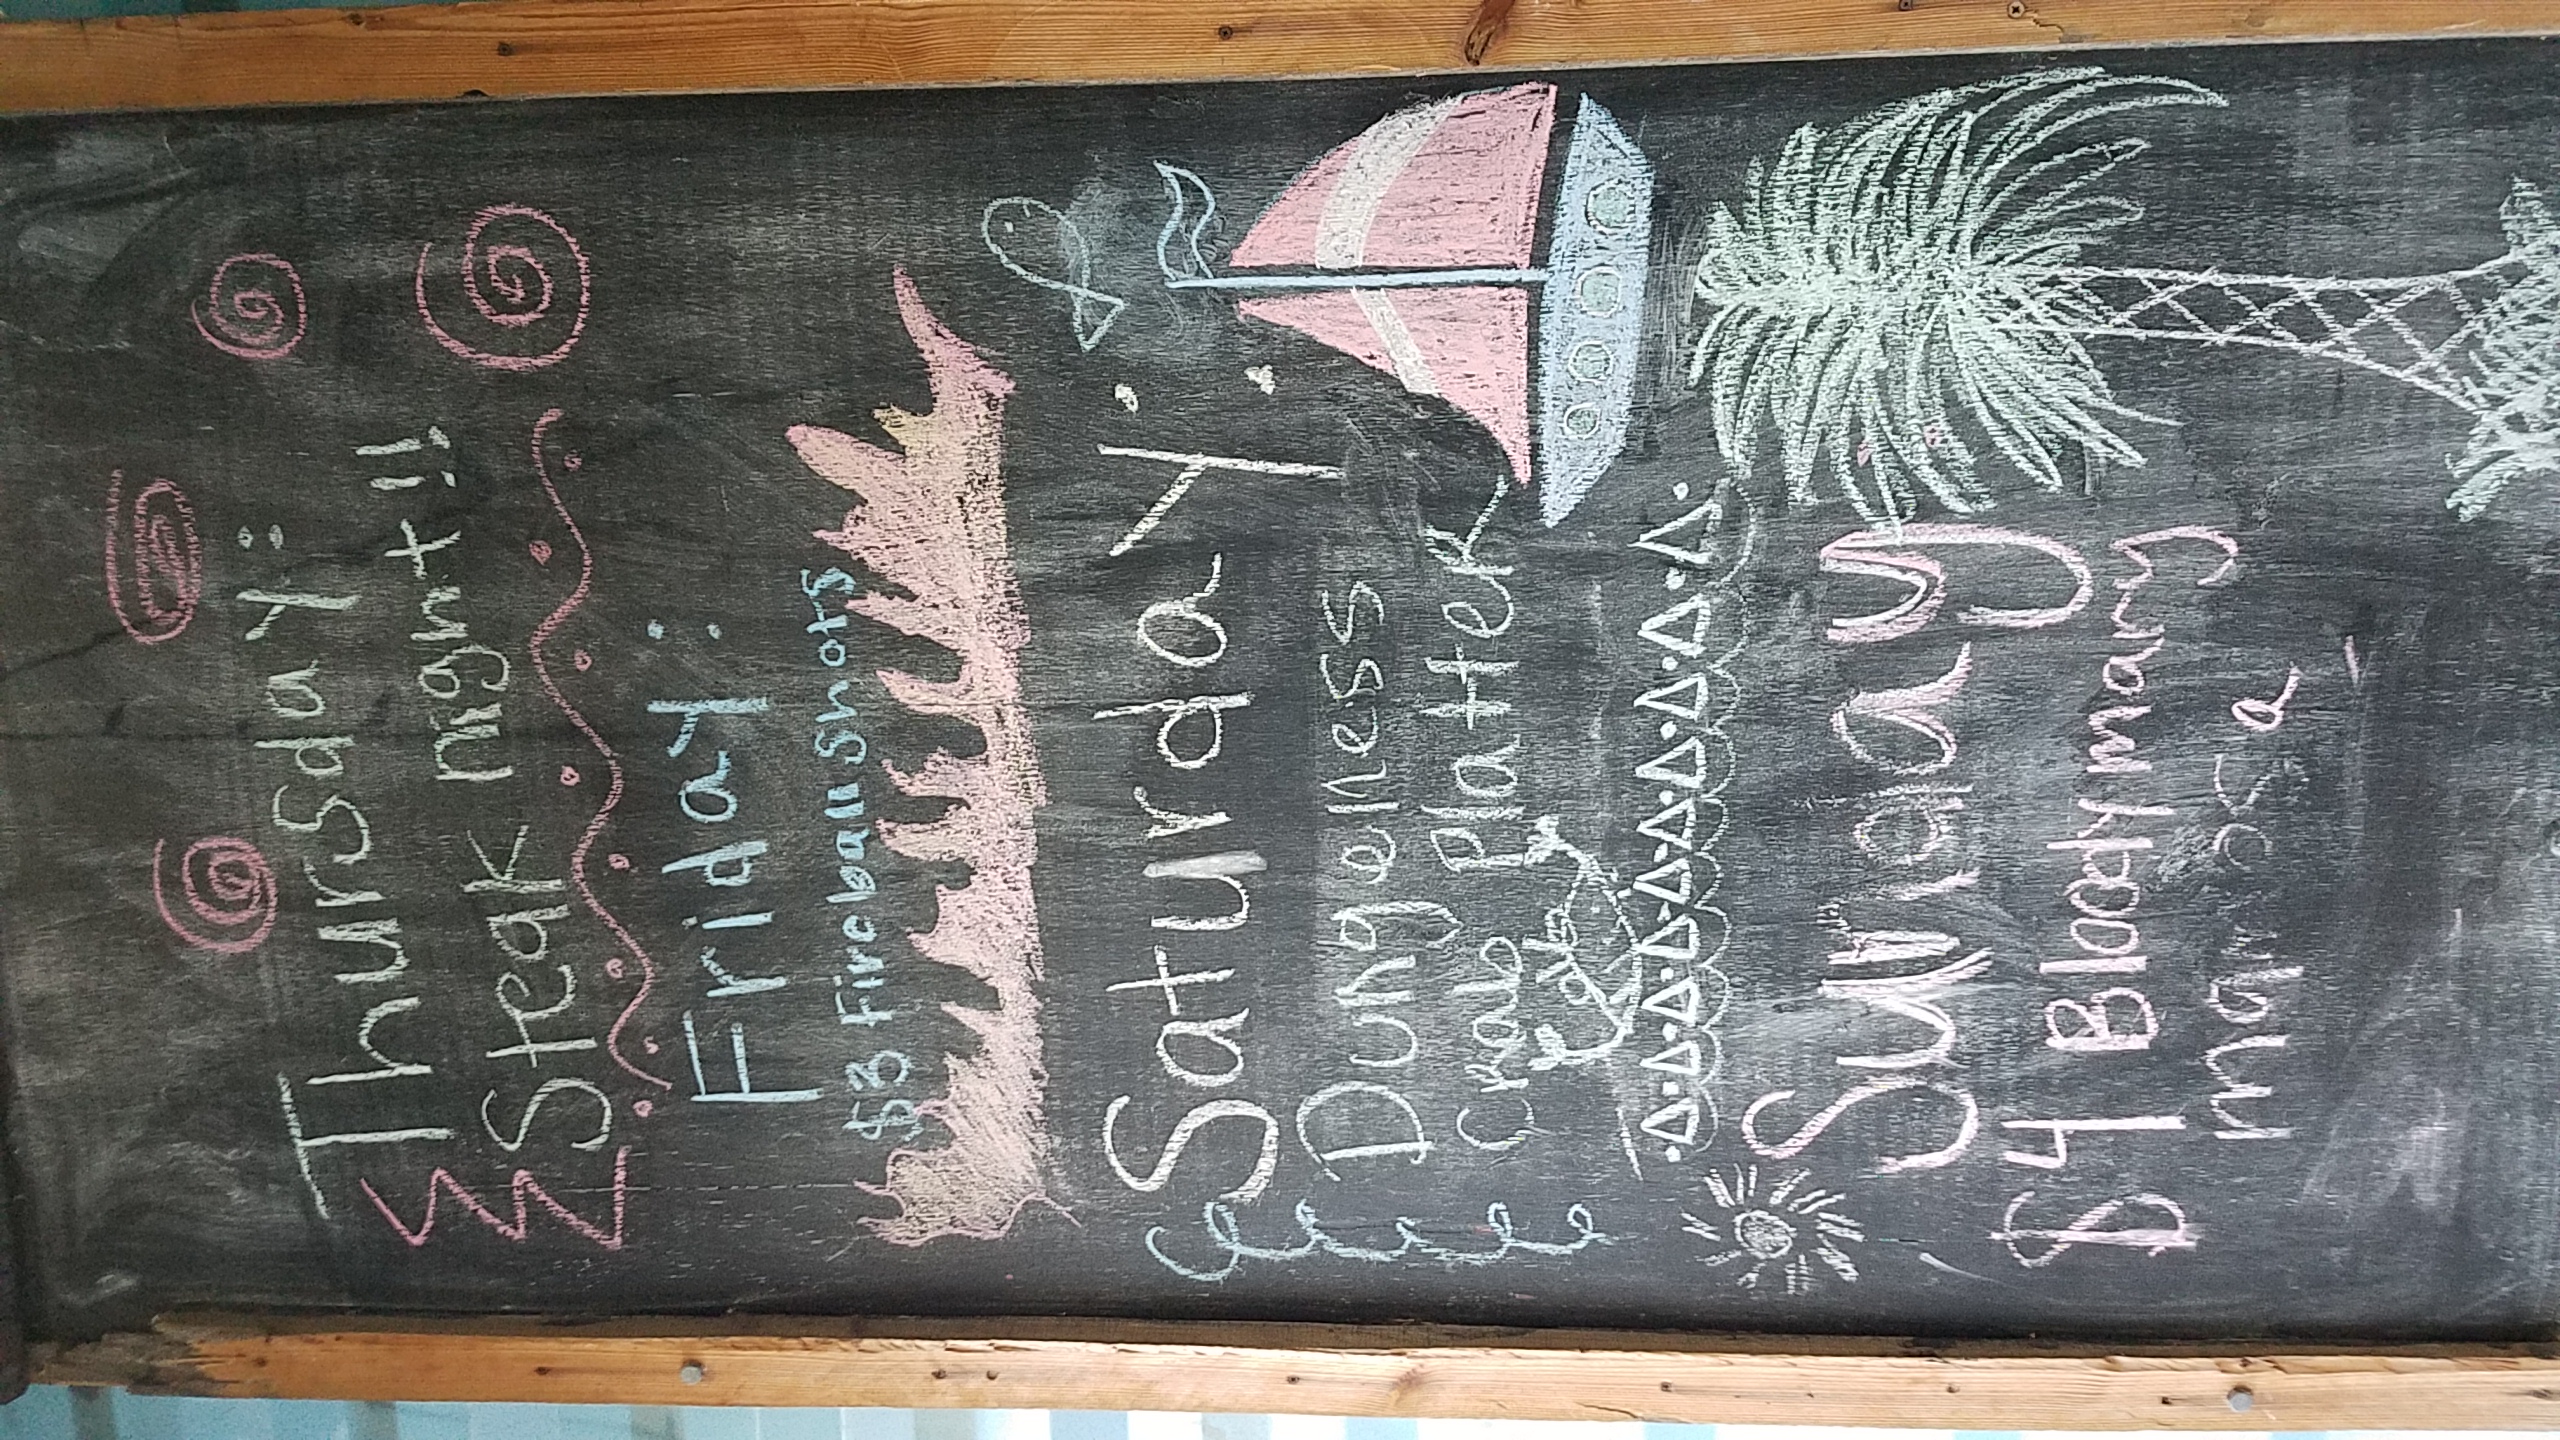 Thursday:
Steak night!!
Friday:
$3 Fireball shots
Saturday:
Dungeness
Crab Platter
Sunday
$4 Bloodymary